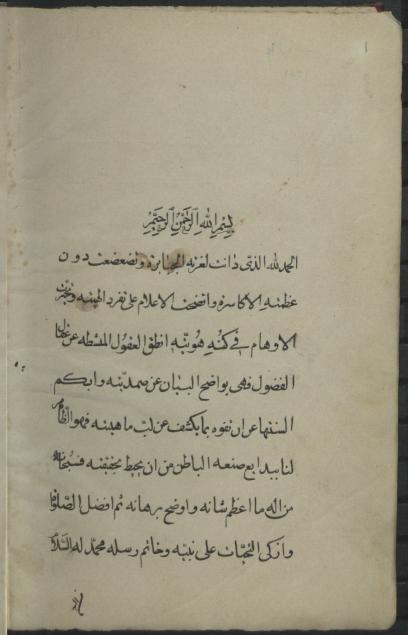 بسم الله الرحمن الرحیم
الحمد لله الذی ذانت لعزته الجبابرة و تضعضعت دون
عظمته الاکاسرة و اتضحت الاعلام علی تفرد الهیته و تحیرت
الاوهام فی کنه هویته انطق العقول عن
الفضول فهی بواضح البیان عن صمدیته و ابکم
السنتها عن ان تفوه بما یکشف عن لب ماهیته فهو الظاهر
لنا ببدایع صنعه الباطن من ان یحیط بحقیقته فسبحانه
من اله ما اعظم شانه و اوضح برهانه ثم افضل الصلوة
و ازکی التحیات علی نبیه و خاتم رسله محمد له السلام